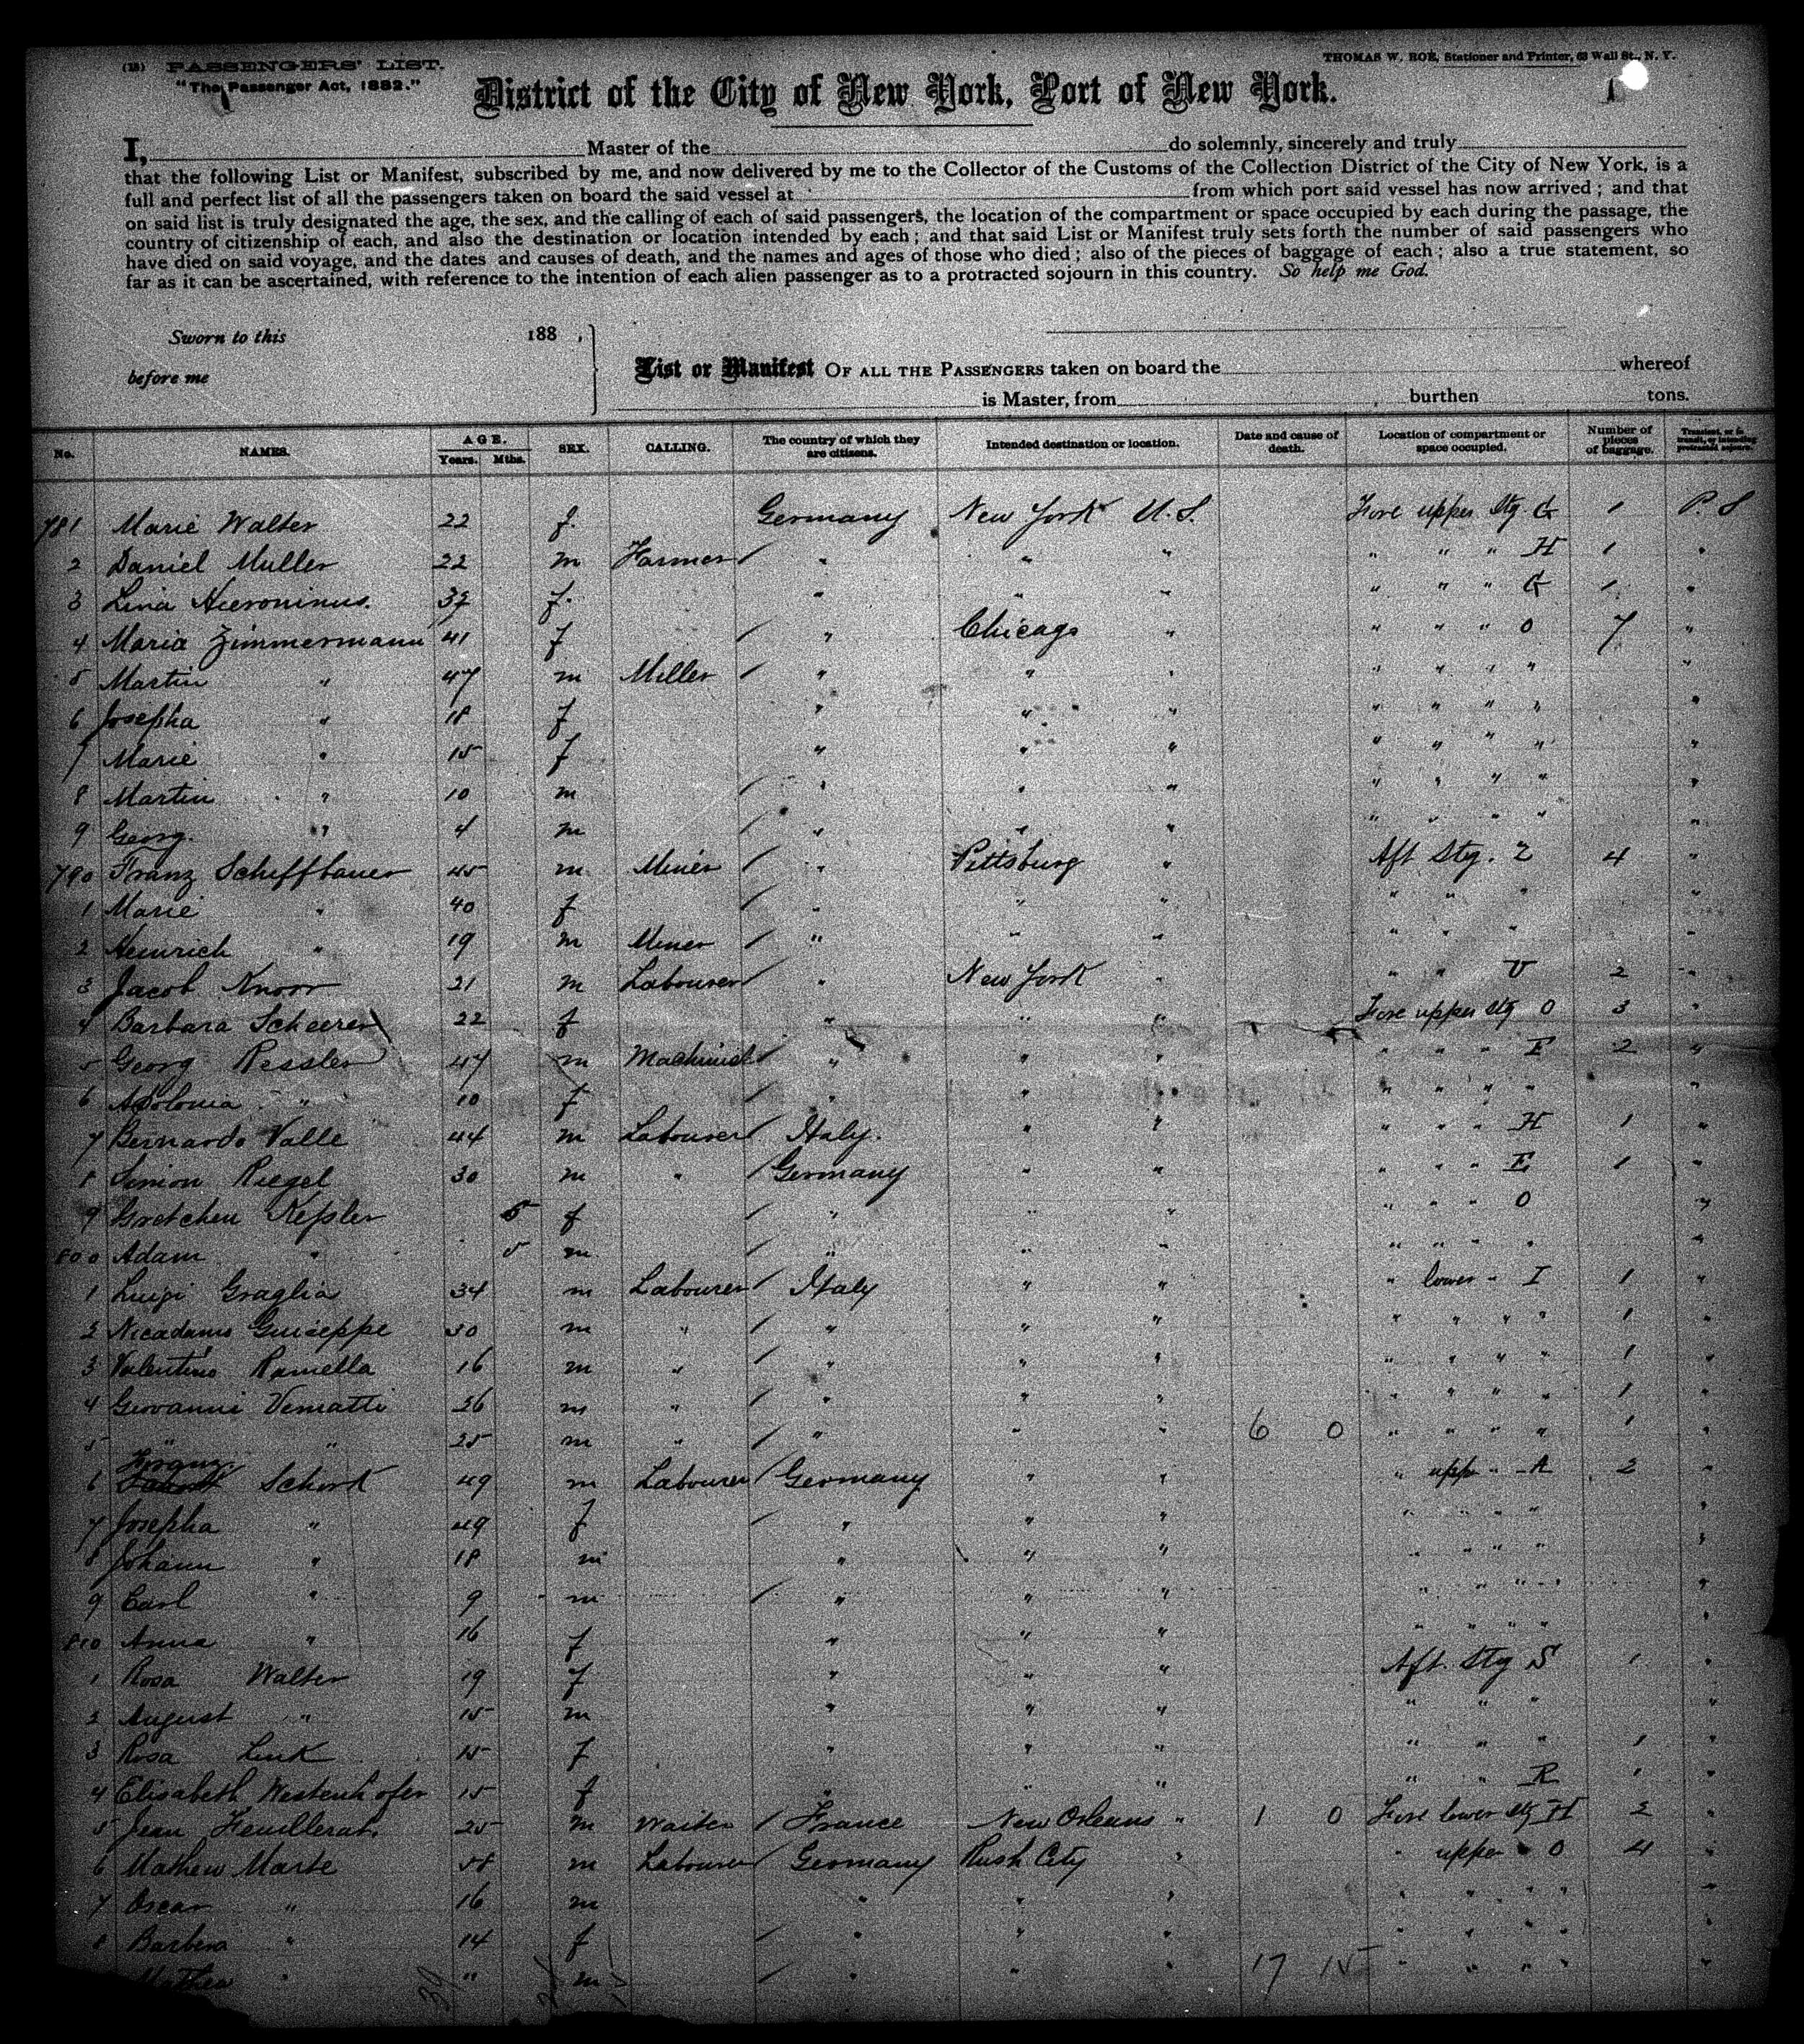 (18) PASSENGERS' LIST.
THOMAS W. ROE, Stationer and Printer, 63 Wall St., N. Y.
"The Passenger Act, 1882."
District of the City of New York, Port of New York.
I, Master of the do solemnly, sincerely and truly
that the following List or Manifest, subscribed by me, and now delivered by me to the Collector of the Customs of the Collection District of the City of New York, is a
full and perfect list of all the passengers taken on board the said vessel at from which port said vessel has now arrived; and that
on said list is truly designated the age, the sex, and the calling of each of said passengers, the location of the compartment or space occupied by each during the passage, the
country of citizenship of each, and also the destination or location intended by each; and that said List or Manifest truly sets forth the number of said passengers who
have died on said voyage, and the dates and causes of death, and the names and ages of those who died; also of the pieces of baggage of each; also a true statement, so
far as it can be ascertained, with reference to the intention of each alien passenger as to a protracted sojourn in this country. So help me God.
Sworn to this 188 ,
before me
List or Manifest OF ALL THE PASSENGERS taken on board the whereof
is Master, from , burthen tons.
No. NAMES. AGE. Years. Mths. SEX. CALLING. The country of which they are citizens. Intended destination or location. Date and cause of death. Location of compartment or space occupied. Number of pieces of baggage.
781 Marie Walter 22 f. Germany New York U.S. Fore upper Stg G 1 P. S
2 Daniel Muller 22 m Farmer / " " " " " " H 1 "
3 Lina Hieronimus. 32 f. " " " " " " G 1 "
4 Maria Zimmermann 41 f / " Chicago " " " " O 7 "
5 Martin " 47 m Miller / " " " " " " " "
6 Josepha " 18 f " " " " " " " "
7 Marie " 15 f " " " " " " " "
8 Martin " 10 m / " " " " " " " "
9 Georg. " 4 m / " " " " " " " "
790 Franz Schiffbauer 45 m Miner / " Pittsburg " Aft Stg. Z 4 "
1 Marie " 40 f / " " " " " " "
2 Heinrich " 19 m Miner / " " " " " " "
3 Jacob Knorr 21 m Labourer / " New York " " " U 2 "
4 Barbara Scheerer 22 f " " " Fore upper Stg O 3 "
5 Georg Ressler 47 m Machinist / " " " " " " E 2 "
6 Apolonia " 10 f / " " " " " " " "
7 Bernardo Valle 44 m Labourer / Italy. " " " " " H 1 "
8 Simon Riegel 30 m " / Germany " " " " " E 1 "
9 Gretchen Kessler 5 f / " " " " " " O "
800 Adam " 5 m / " " " " " " " "
1 Luigi Graglia 34 m Labourer / Italy " " " lower " I 1 "
2 Nicadamo Guiseppe 30 m " / " " " " " " " 1 "
3 Valentino Ramella 16 m " / " " " " " " " 1 "
4 Giovanni Vematti 26 m " / " " " " " " " 1 "
5 " " 25 m " / " " " 6 0 " " " " 1 "
6 Franz Schork 49 m Labourer / Germany " " " upp " A 2 "
7 Josepha " 49 f / " " " " " " " "
8 Johann " 18 m " " " " " " " "
9 Carl " 9 m / " " " " " " " "
810 Anna " 16 f " " " " " " " "
1 Rosa Walter 19 f " " " Aft. Stg S 1 "
2 August " 15 m " " " " " " "
3 Rosa Link 15 f " " " " " " 1 "
4 Elisabeth Westenhofer 15 f " " " " " R 1 "
5 Jean 25 m Waiter / France New Orleans " 1 0 Fore lower Stg H 2 "
6 Mathew Marte 58 m Labourer / Germany Rush City " " upper " O 4 "
7 Oscar " 16 m " " " " " " " "
8 Barbara " 14 f / " " " " " " " "
" " m / " " " 17 15 " " " " "